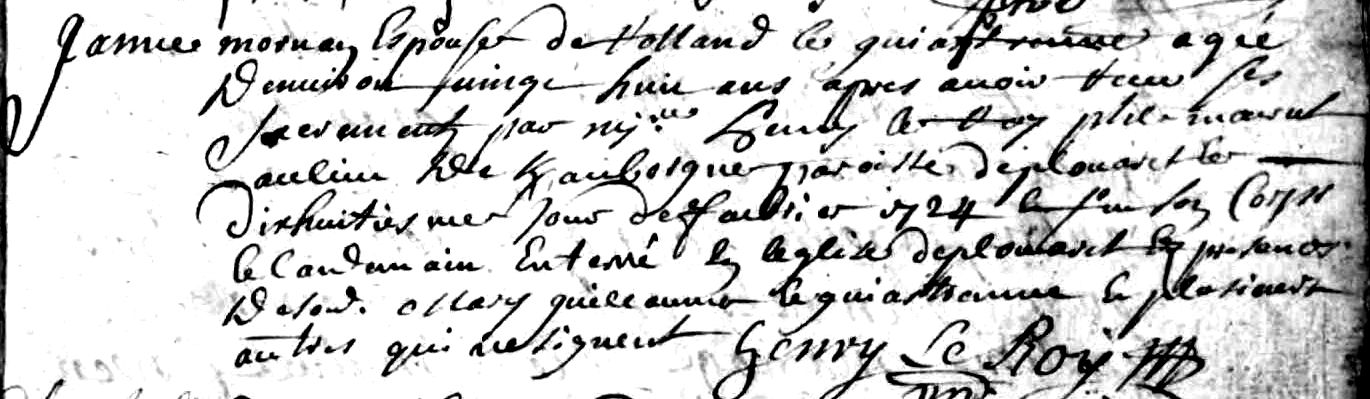 Jannee morvan Espouse de Rolland le quiastrenne agée
Denuiron suinge huit ans apres auoir Receu ses
sacrements par mis.re Henry le Roy ptre mourut
au lieu de Kaubosquer paroisse deplouaret le
dixhuitiesme Jour de feubvrier 1724 et fu son Corps
le landemain Enterré En leglise deplouaret En presence
De sond. Mary guillaume le quiastranne Et plusieurs
autres qui ne signent Henry Le Roy